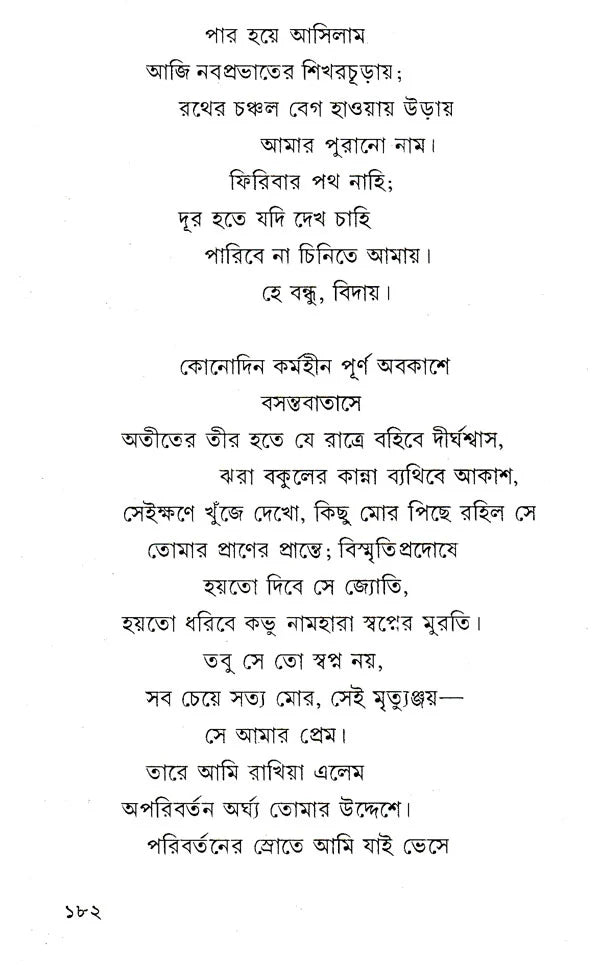 পার হয়ে আসিলাম
আজি নবপ্রভাতের শিখরচূড়ায়;
রথের চঞ্চল বেগ হাওয়ায় উড়ায়
আমার পুরানো নাম।
ফিরিবার পথ নাহি;
দূর হতে যদি দেখ চাহি
পারিবে না চিনিতে আমায়।
হে বন্ধু, বিদায়।
কোনোদিন কর্মহীন পূর্ণ অবকাশে
বসন্তবাতাসে
অতীতের তীর হতে যে রাত্রে বহিবে দীর্ঘশ্বাস,
ঝরা বকুলের কান্না ব্যথিবে আকাশ,
সেইক্ষণে খুঁজে দেখো, কিছু মোর পিছে রহিল সে
তোমার প্রাণের প্রান্তে; বিস্মৃতিপ্রদোষে
হয়তো দিবে সে জ্যোতি,
হয়তো ধরিবে কভু নামহারা স্বপ্নের মুরতি।
তবু সে তো স্বপ্ন নয়,
সব চেয়ে সত্য মোর, সেই মৃত্যুঞ্জয়—
সে আমার প্রেম।
তারে আমি রাখিয়া এলেম
অপরিবর্তন অর্ঘ্য তোমার উদ্দেশে।
পরিবর্তনের স্রোতে আমি যাই ভেসে
১৮২